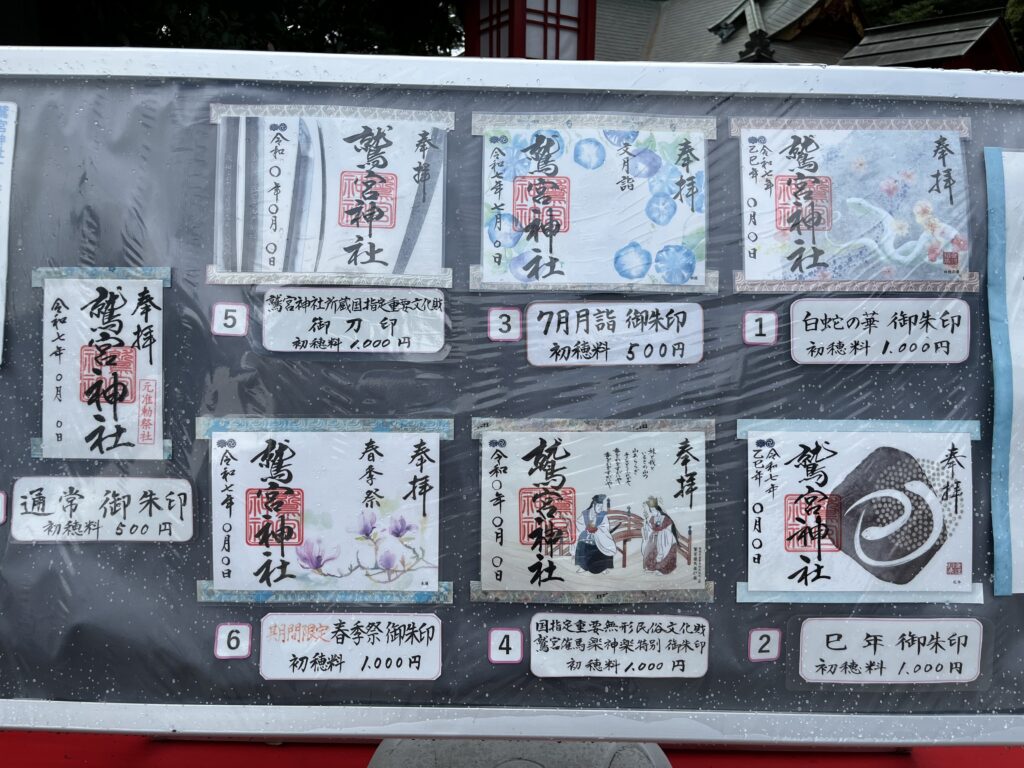 奉拝
鷲宮神社
令和七年
乙巳年
〇月〇日
1
白蛇の華 御朱印
初穂料 1.000円
奉拝
鷲宮神社
令和七年〇月〇日
乙巳年
2
巳年 御朱印
初穂料 1.000円
奉拝
文月詣
鷲宮神社
令和七年七月〇日
3
7月月詣 御朱印
初穂料 500円
奉拝
鷲宮神社
令和〇年〇月〇日
4
国指定重要無形民俗文化財
鷲宮催馬楽神楽特別 御朱印
初穂料 1.000円
奉拝
鷲宮神社
令和〇年〇月〇日
5
鷲宮神社所蔵国指定重要文化財
御刀印
初穂料 1.000円
奉拝
春季祭
鷲宮神社
令和七年〇月〇日
6
期間限定 春季祭御朱印
初穂料 1.000円
奉拝
元准勅祭社
鷲宮神社
令和七年〇月〇日
通常 御朱印
初穂料 500円
鷲宮神社